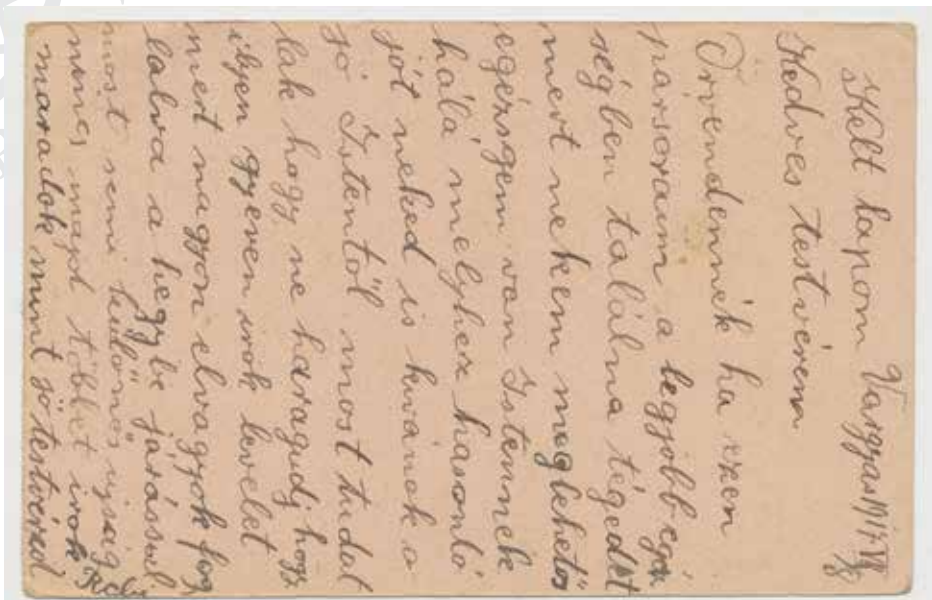 Kelt lapom Vargyas 1917 VI
Kedves testvérem
Örvendenék ha ezen
pársoraim a legjobb egés
ségben találna tégedet
mert nekem meglehetős
egézségem van Istennek
hála melyhez hasonló
jót neked is kivánok a
jó Istentől most tudat
lak hogy ne haragudj hogy
ilyen gyéven irok levelet
mert nagyon elvagyok fog
lalva a hegybe járással
most semi külömös ujság
nincs majd többet irok
maradok mint jó testvéred